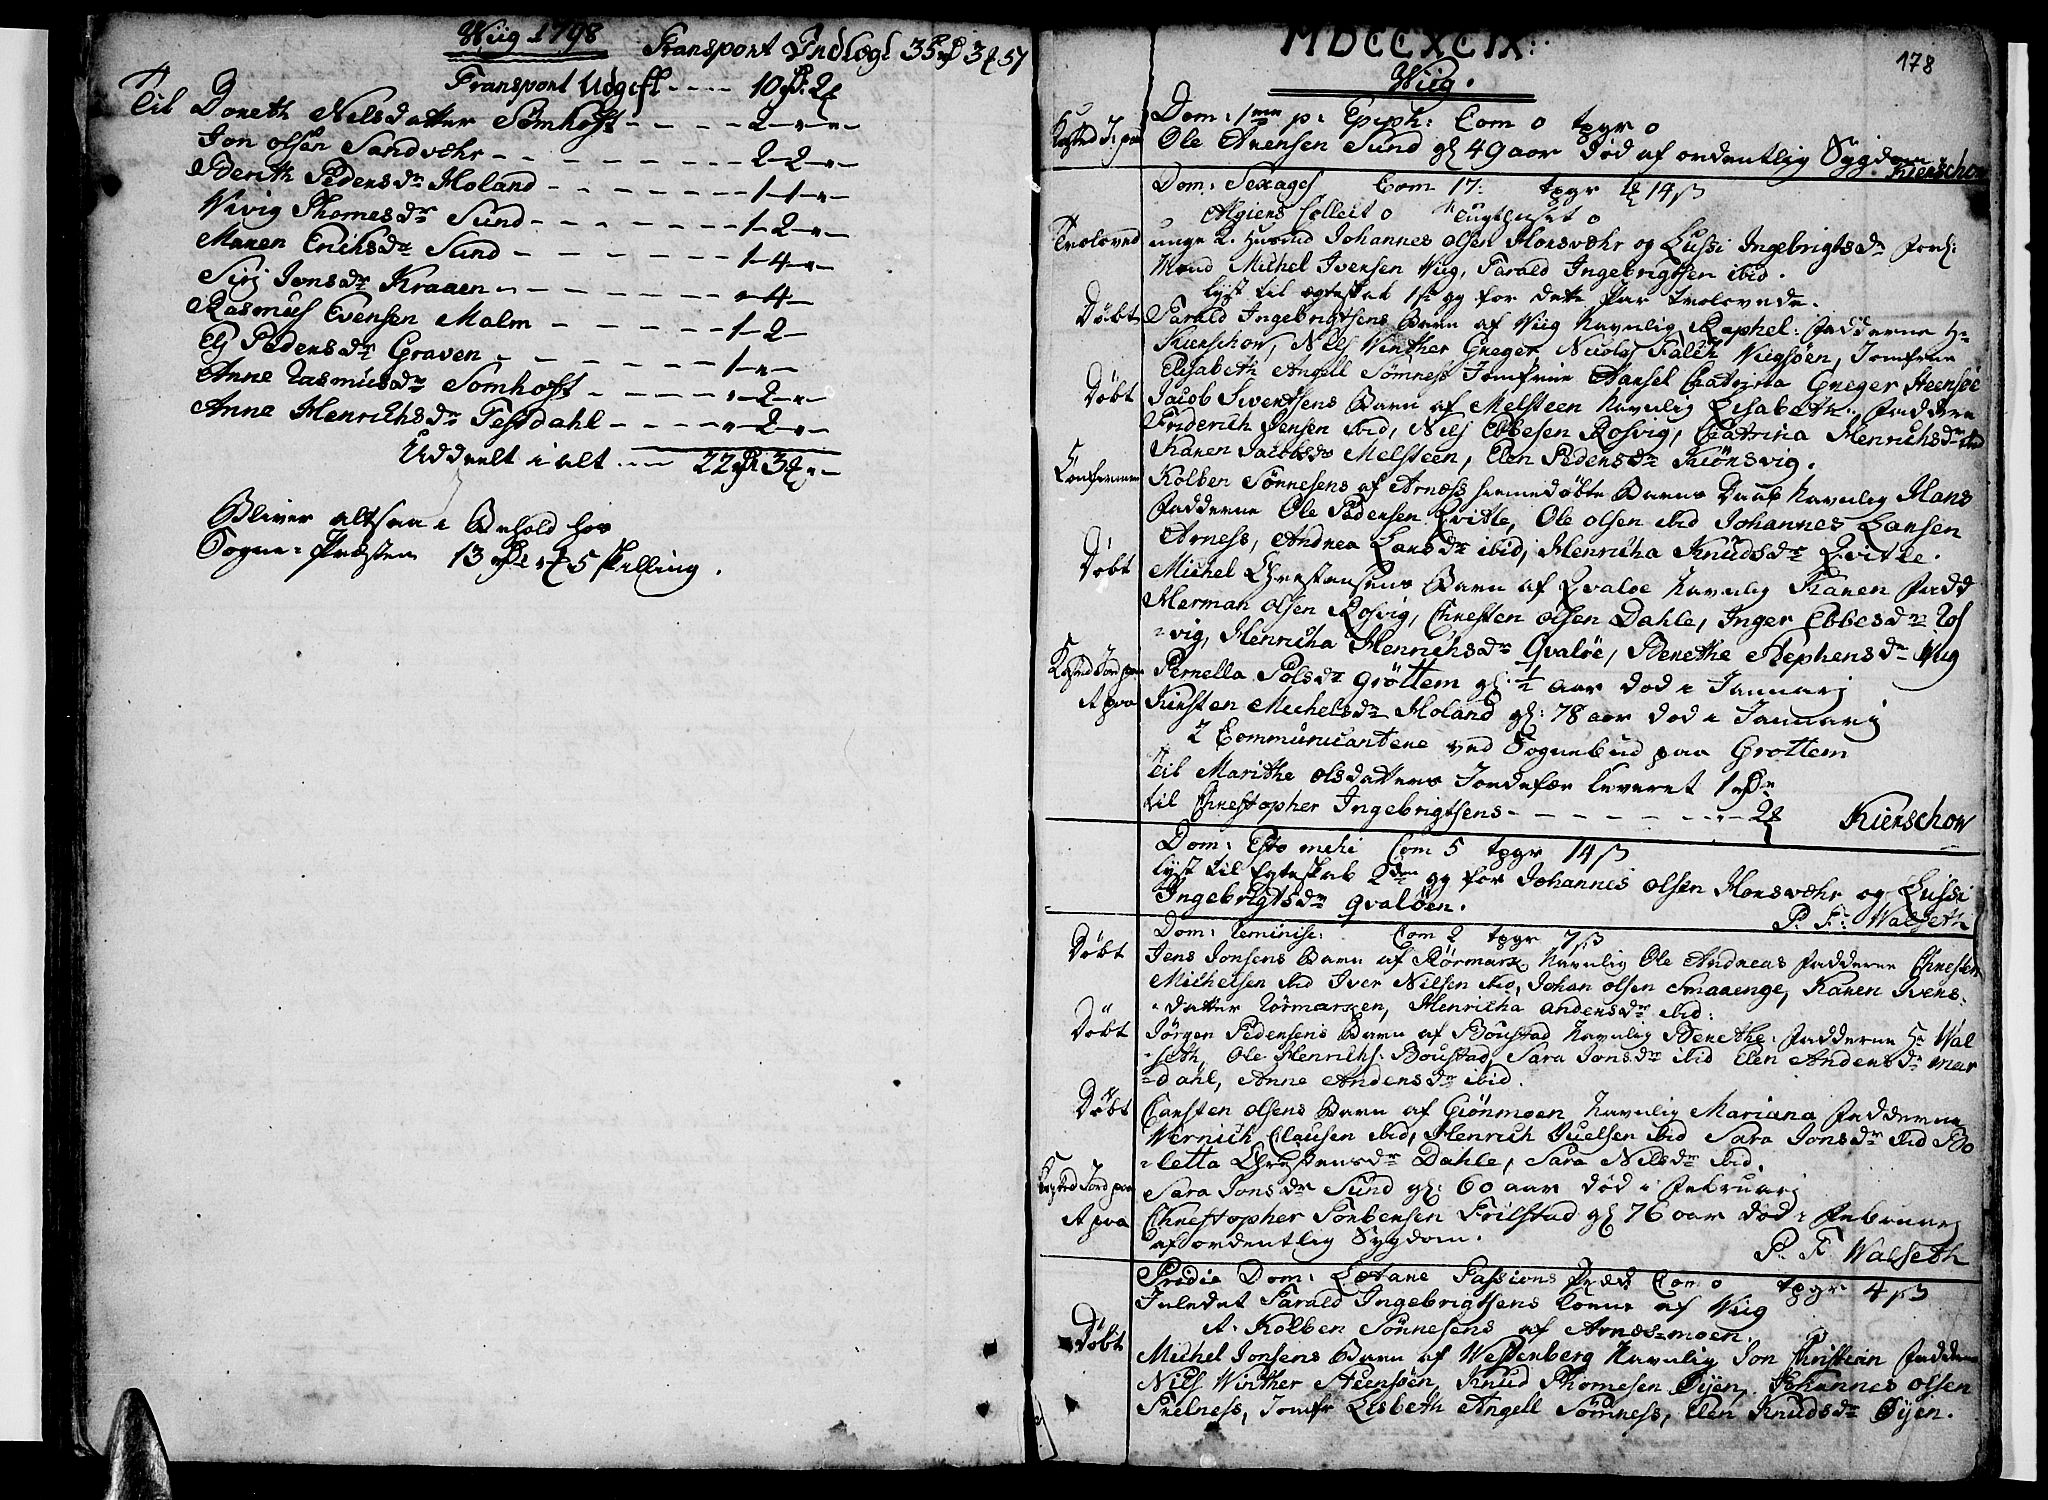 Wiig 1798
Transport Indlægt 35
Transport Udgift ---- 10
Til Doreth Nilsdatter Sømhofst ---- 2
Jon olsen Sandvæhr ---- 2-2
Berith Pedersdr Holand ---- 1-1
Wivig Thomesdr Sund ---- 1-2
Maren Erichsdr Sund ---- 1-4
Sirj Jonsdr Kraaen ---- 4
Rasmus Evensen Malm ---- 1-2
Elj Pedersdr Graven ---- 1
Anne Rasmusdr Somhofst ---- 2
Anne Henrichsdr Testdahl ---- 2
Uddeelt i alt ---- 22
Bliver altsaa i Behold hos
Sogne-Præsten 13 5 skilling.
178
MDCCXCIX:
Wiig.
Dom: 1me p: Epiph: Com 0 tpgr 0
Kasted J: paa Ole Arensen Sund gl 49 aar død af ordentlig Sygdom
Kierschow
Dom: Sexages Com 17: tpgr 14 ß
Algiers Collect 0 Tugthuset 0
Troloved unge Johannes olsen Horsvæhr og Lussi Ingebrigtsdr
Mend Michel Iversen Wiig, Tarald Ingebrigtsen ibid.
lyst til ægteskab 1ste gg for dette Par trolovede.
Døbt Tarald Ingebrigtsens Barn af Wiig navnlig Raphel: fadderne Hr
Kierschow, Nils Winther Greger, Nicolaj Falch Wiigsøen, Jomfrue
Elisabeth Angell Sømness Jomfrue Catrina Greger Steensøe
Døbt Jacob Sivertsens Barn af Melsteen navnlig Lisabeth: faddere
Friderich Jensen ibid, Nils Ebbesen Rosvig, Catrina Henrichsdr ibid
Karen Jacobsdr Melsteen, Elen Pedersdr Kiønsvig.
Kolben Sønnesens af Arness hiemedøbte Barns Daab navnlig Hans
fadderne Ole Pedersen Qvitle, Ole olsen ibid Johannes Larsen
Arness, Andrea Larsdr ibid, Henricha Knudsdr Qvitle.
Døbt Michel Christensens Barn af Qvaløe navnlig Karen fadd
Herman olsen Rosvig, Christen olsen Dahle, Inger Ebbesdr Ros
-vig, Henricha Henrichsdr Qvaløe, Berethe Stephensdr Wiig
Kasted Jord paa Pernella Polsdr Grøttem gl: 1/2 aar død i Januarj
Kirsten Michelsdr Holand gl: 78 aar død i Januarij
2 Communicantere ved Sognebud paa Grottem
Til Marithe olsdatters Jordefær leveret 1
til Christopher Ingebrigtsens ---- 2
Kierschow
Dom: Esto mihi Com 5 tpgr 14 ß
lyst til Egteskab 2den gg for Johannes olsen Horsvæhr og Lussi
Ingebrigtsdr Qvaløen.
P. F: Walseth
Dom: Reminisc: Com 2 tpgr 7 ß
Døbt Jens Jonsens Barn af Rørmark navnlig Ole Andreas fadderne Christen
Michelsen ibid Iver Nilsen ibid, Johan olsen Smaaenge, Karen Ivers-
-datter Rørmarken, Henricha Andersdr ibid:
Døbt Jørgen Pedersens Barn af Boustad navnlig Berethe: fadderne Hr Wal
-seth, Ole Henrichs: Boustad, Sara Jonsdr ibid Elen Andersdr Mar
-dahl, Anne Andersdr ibid.
Døbt Carsten olsens Barn af Grønmoen navnlig Mariana fadderne
Wernich Clausen ibid, Henrich Juelsen ibid Sara Jonsdr ibid Bo
-letta Christensdr Dahle, Sara Nilsdr ibid.
Kasted Jord paa Sara Jonsdr Sund gl: 60 aar død i Februarj
Christopher Torbersen Frilstad gl 76 aar død i Februarj
af ordentlig Sygdom.
P. F. Walseth
Prædie Dom: Lætare Passions Præd Com 0 tpgr 4 ß
Inledet Tarald Ingebrigtsens Kone af Wiig
It. Kolben Sønnesens af Arnæs-moen.
Døbt Michel Jonsens Barn af Westerberg navnlig Jon Christian fadderne
Nils Winther Steensøen, Knud Thomesen Øijen, Johannes olsen
Pselness, Jomfr Lisbeth Angell Sømness, Elen Knudsdr Øijen.